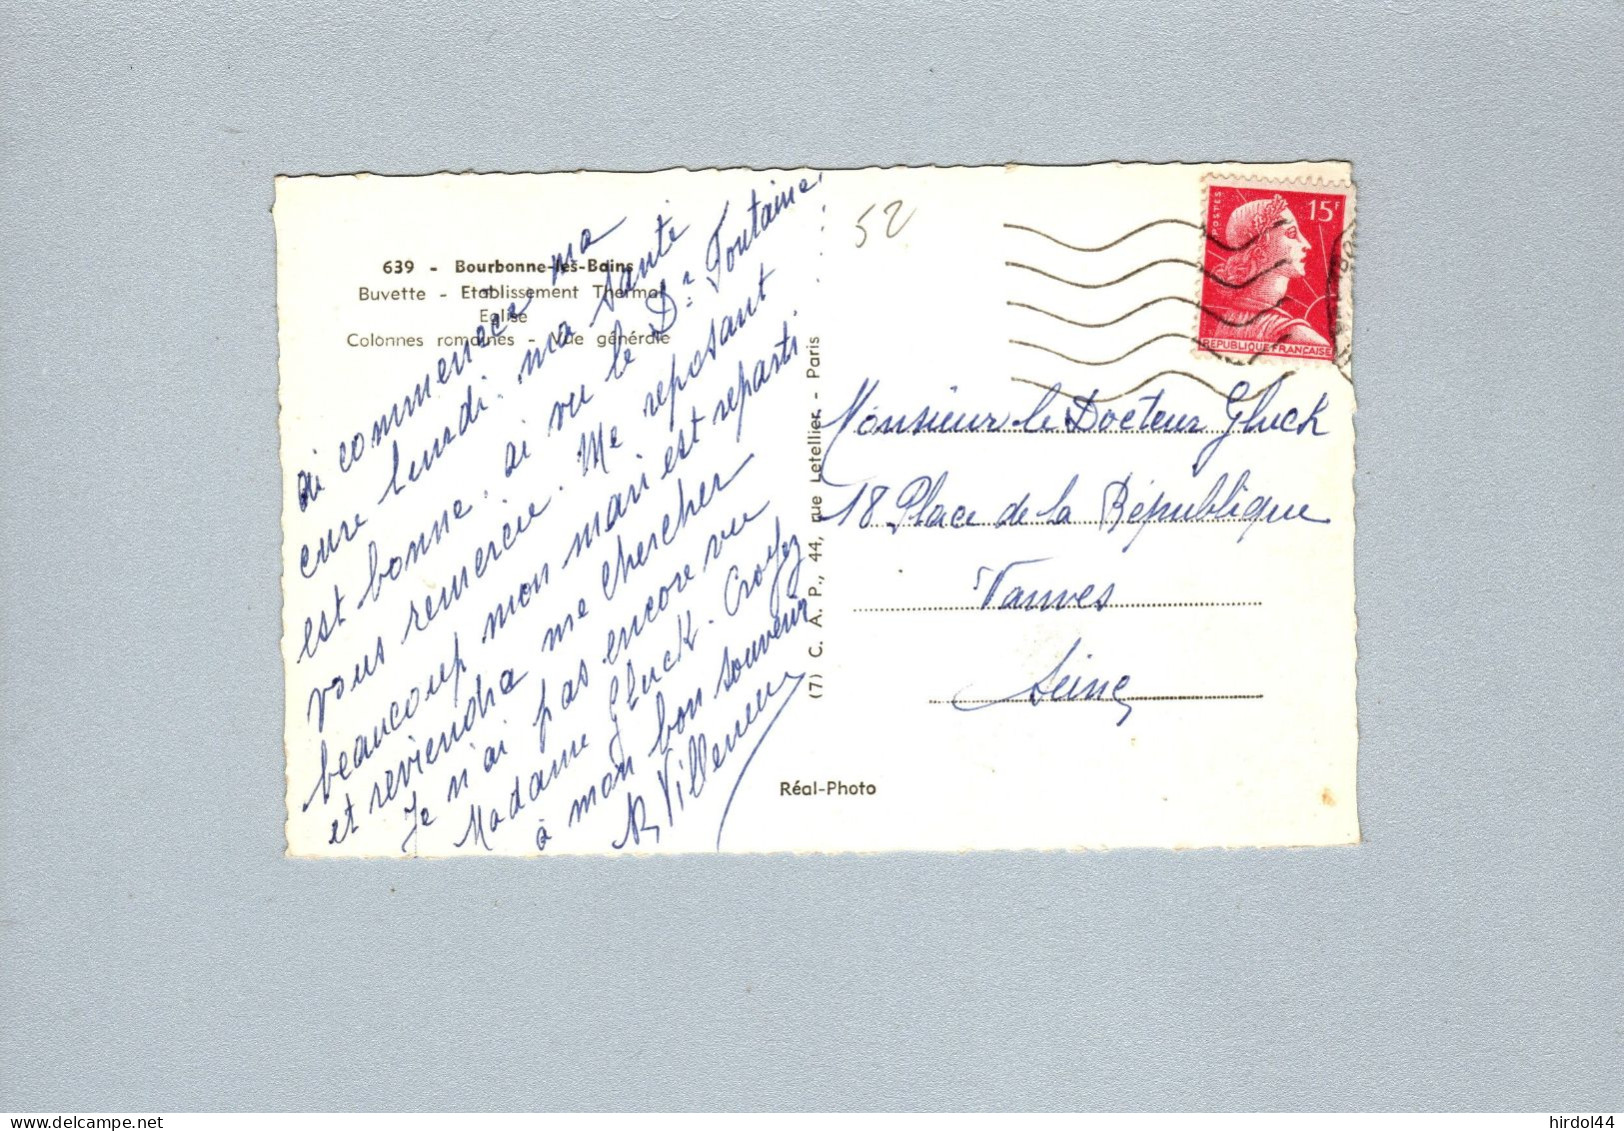 639 - Bourbonne-les-Bains
Buvette - Etablissement Thermal
Eglise
Colonnes romaines - Vue générale
ai commencée ma
cure lundi. ma santé
est bonne. ai vu le Dr Fontaine,
vous remercie. Me reposant
beaucoup, mon mari est reparti
et reviendra me chercher
Je n'ai pas encore vu
Madame Gluck. Croyez
à mon bon souvenir
R Villeneuve
(7) C. A. P., 44, rue Letellier. - Paris
Réal-Photo
52
POSTES
15F
REPUBLIQUE FRANCAISE
Monsieur le Docteur Gluck
18 Place de la République
Vanves
Seine
hirdol44